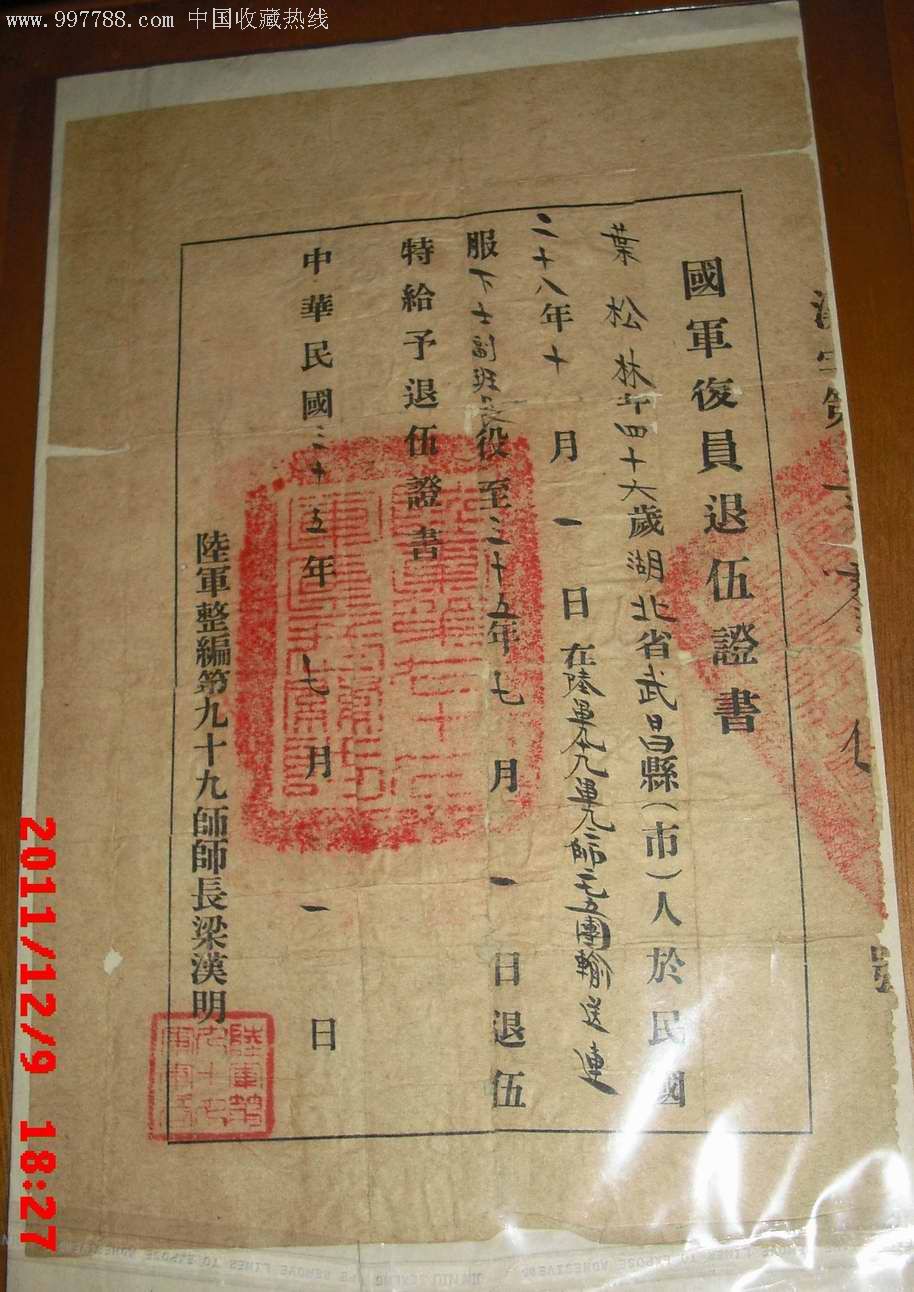 www.997788.com 中国收藏热线
國軍復員退伍證書
葉松林年四十六歲湖北省武昌縣(市)人於民國
二十八年十月一日在陸軍九九軍九二師二七五團輸送連
服下士副班長役至三十五年七月一日退伍
特給予退伍證書
中華民國三十五年七月一日
陸軍整編第九十九師師長梁漢明
號
2011/12/9 18:27